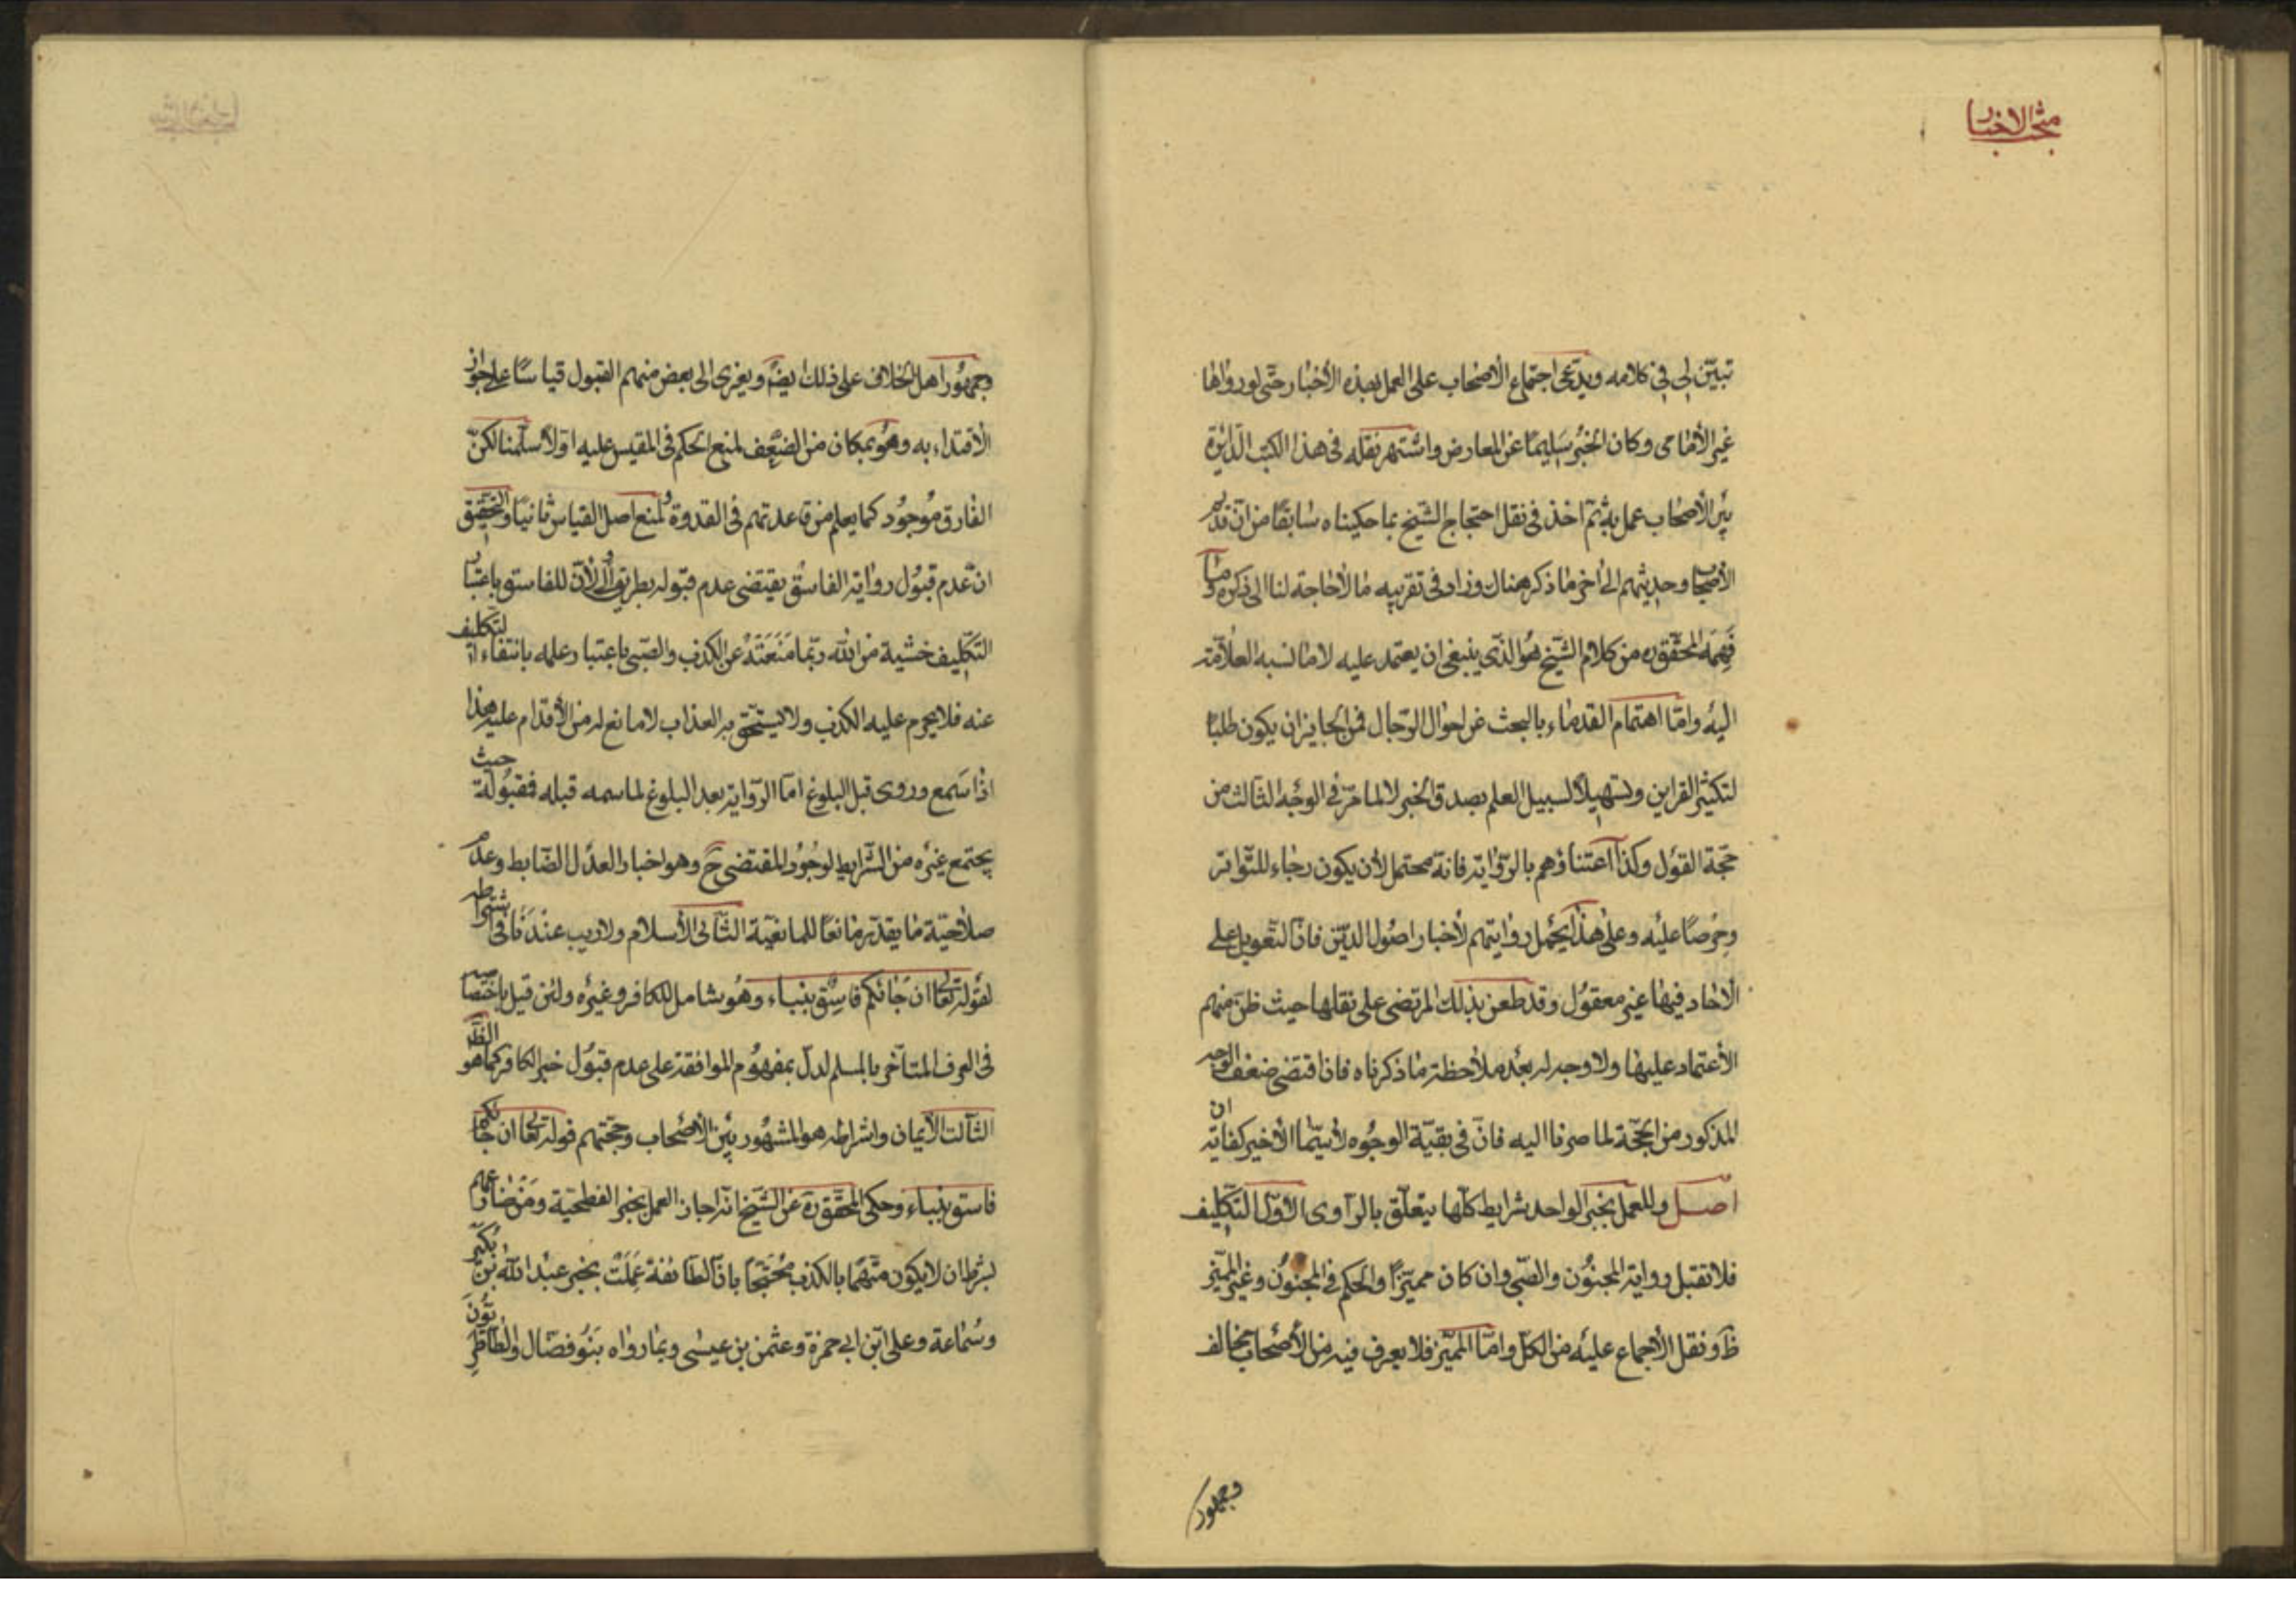 مبحث الاخبار
تبيّن لى فى كلامه ويدّعى اجتماع الاصحاب على العمل بهذه الأخبار حتّى لو رواها
غير الأمامى وكان الخبر سليمًا عن المعارض واشتهر نقله فى هذا الكتب الدّائرة
بين الأصحاب عمل به ثمّ اخذ فى نقل احتجاج الشيخ بما حكيناه سابقًا من انّ قديم
الأصحاب وحديثهم الى اخر ما ذكر هناك وزاد فى تقريبه ما لاحاجة لنا الى ذكره وما
فهمه المحقّق ره من كلام الشّيخ هو الذى ينبغى ان يعتمد عليه لا ما نسبه العلاّمة
اليه وامّا اهتمام القدماء بالبحث عن احوال الرّجال فمن الجايز ان يكون طلبًا
لتكثير القراين وتسهيلاً لسبيل العلم بصدق الخبر لا لما مرّ فى الوجه الثالث من
حجّة القول وكذا اعتناؤهم بالرّواية فانّه محتمل لأن يكون رجاء للتّواتر
وحرصًا عليه وعلى هذا يحمل روايتهم لأخبار اصول الدّين فانّ التّعويل على
الأحاد فيها غير معقول وقد طعن بذلك المرتضى على نقلها حيث ظنّ منهم
الأعتماد عليها ولا وجه له بعد ملاحظة ما ذكرناه فاذا اقتضى ضعف الوجه
المذكور من الحجّة لما صرفنا اليه فانّ فى بقيّة الوجوه لا سيّما الأخير كفاية ان
اصل وللعمل بخبر الواحد شرايط كلّها يتعلّق بالرّاوى الأوّل التّكليف
فلا تقبل رواية المجنون والصّبى وان كان مميّزًا والحكم فى المجنون وغير المميّز
ظ ونقل الأجماع عليه من الكلّ وامّا المميّز فلا يعرف فيه من الأصحاب مخالف
وجمهور
وجمهور اهل الخلاف على ذلك ايضًا ويعزى الى بعض منهم القبول قياسًا على جواز
الأقتداء به وهو بمكان من الضّعف لمنع الحكم فى المقيس عليه اوّلا سلّمنا لكنّ
الفارق موجود كما يعلم من قاعدتهم فى القدوة ولمنع اصل القياس ثانيًا والتّحقيق
انّ عدم قبول رواية الفاسق يقتضى عدم قبوله بطريق أولى لأنّ للفاسق باعتبار
التّكليف خشية من الله ربّما منعته عن الكذب والصّبى باعتبار علمه بانتفاء التّكليف
عنه فلا يحرم عليه الكذب ولا يستحقّ به العذاب لا مانع له من الأقدام عليه هذا
اذا سمع وروى قبل البلوغ امّا الرّواية بعد البلوغ لما سمعه قبله فمقبولة حيث
يجتمع غيره من الشّرايط لوجود المقتضى ح وهو اخبار العدل الضّابط وعدم
صلاحيّة ما يقدّر مانعًا للمانعيّة الثّانى الأسلام ولا ريب عندنا فى اشتراطه
لقوله تعالى ان جائكم فاسق بنباء وهو شامل للكافر وغيره ولئن قيل باختصاصه
فى العرف المتأخّر بالمسلم لدلّ بمفهوم الموافقة على عدم قبول خبر الكافر كما هو الظّاهر
الثّالث الأيمان واشتراطه هو المشهور بين الأصحاب وحجّتهم قوله تعالى ان جائكم
فاسق بنباء وحكى المحقّق ره عن الشّيخ انّه اجاز العمل بخبر الفطحيّة ومن ضارعهم
بشرط ان لا يكون متّهمًا بالكذب محتجًّا بانّ الطّائفة عملت بخبر عبد الله بن بكير
وسماعة وعلى ابن ابى حمزة وعثمن بن عيسى وبما رواه بنو فضّال والطّاطريّون